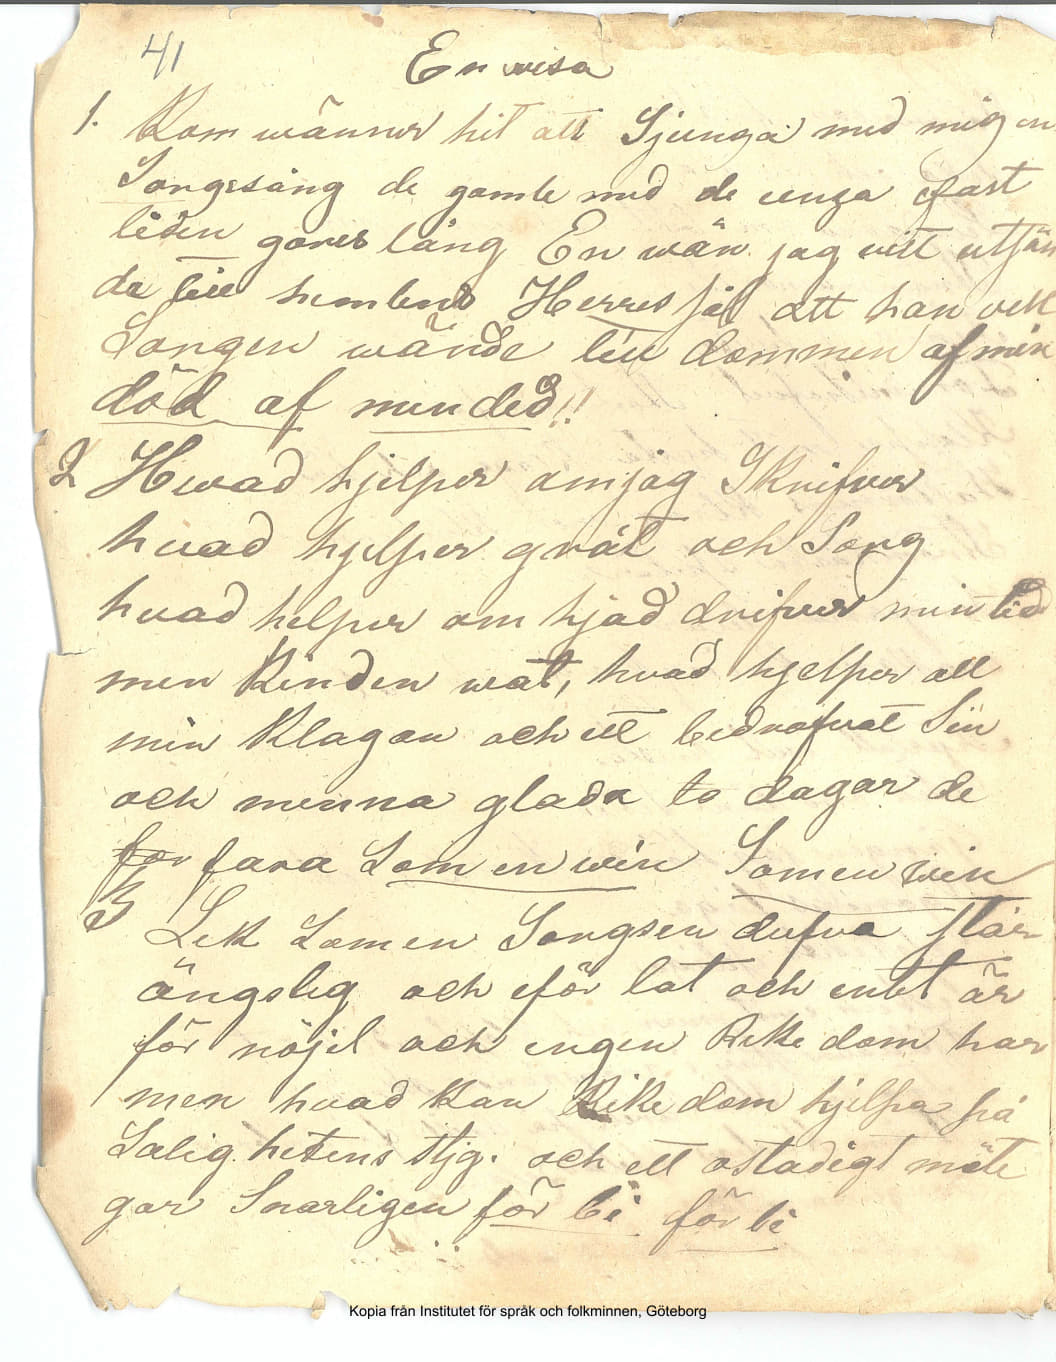 41
En wisa
1. Kom wänner hit att Sjunga med mig en
Sorgesång de gamle med de unga fast
tiden gores lång En wän jag vill utfän
de till himlens Herres sal att han vill
Sorgen wände till dommen af min
död af min ded!!
2 Hwad hjelper om jag Skrifver
hvad hjelper gråt och Sorg
hvad helper om hjad drifver min tid
men Kinden wåt, hvad hjelper all
min Klagan och ett bedrofvat Sin
och menna glada to dagar de
for fara Som en win Som en win
3 Lik Som en Sorgsen dufva står
ängslig och eför lat och intet är
för nöjd och engen Rikedom har
men hvad Kan Rikedom hjelpa på
Salighetens stig. och ett ostadigt möte
gar Snarligen för bi för bi
Kopia från Institutet för språk och folkminnen, Göteborg